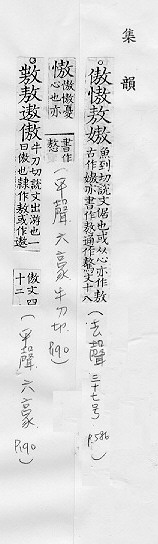 集韻
傲慠敖嫐 魚到切說文倨也或从心亦作敖
古作嫐亦書作敖通作驁文十八
(去聲 三十七号 P.586)
慠 慠慠憂
心也亦
書作
憝
(平聲 六豪 牛刀切 P.190)
敖敖遨傲 牛刀切說文出游也一
曰傲也隸作敖或作遨
傲文四
十二
(平聲 六豪 P.190)